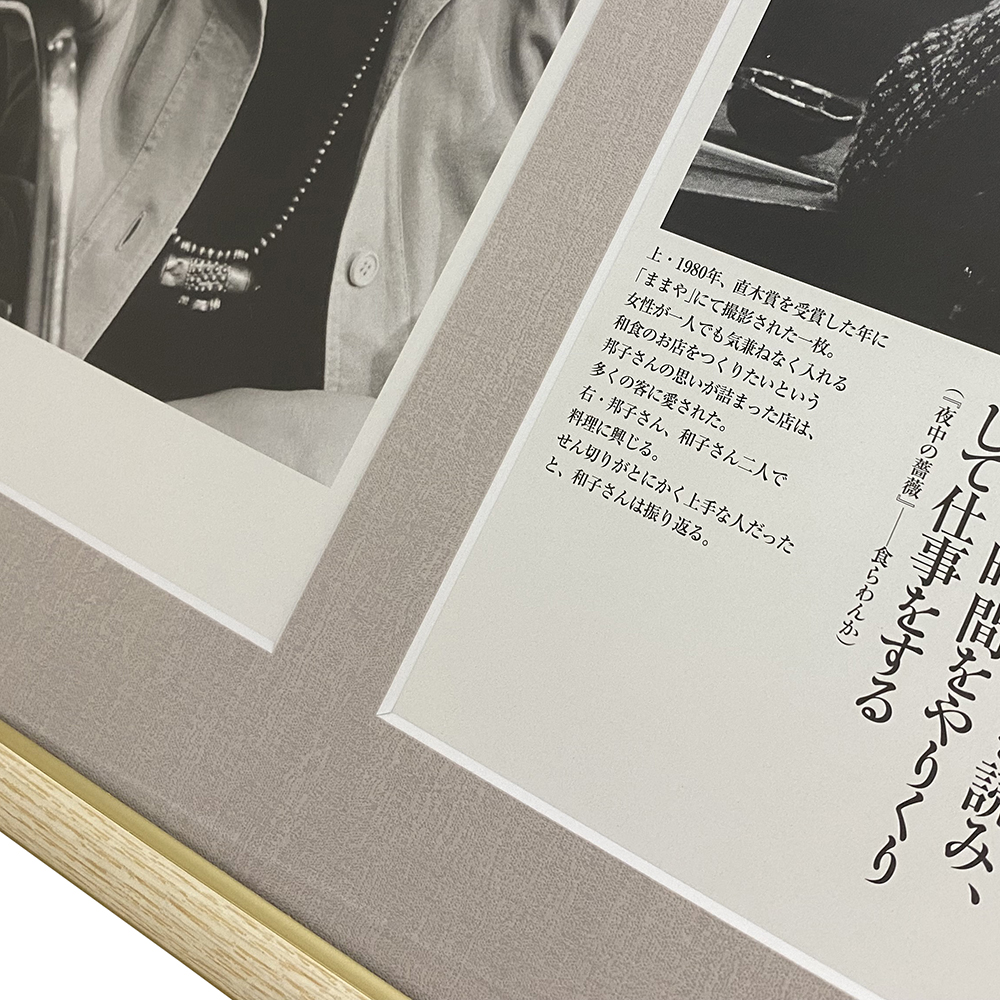 上・1980年、直木賞を受賞した年に
「ままや」にて撮影された一枚。
女性が一人でも気兼ねなく入れる
和食のお店をつくりたいという
邦子さんの思いが詰まった店は、
多くの客に愛された。
右・邦子さん、和子さん二人で
料理に興じる。
せん切りがとにかく上手な人だった
と、和子さんは振り返る。
読み、
時間をやりくり
して仕事をする
（『夜中の薔薇』──食らわんか）